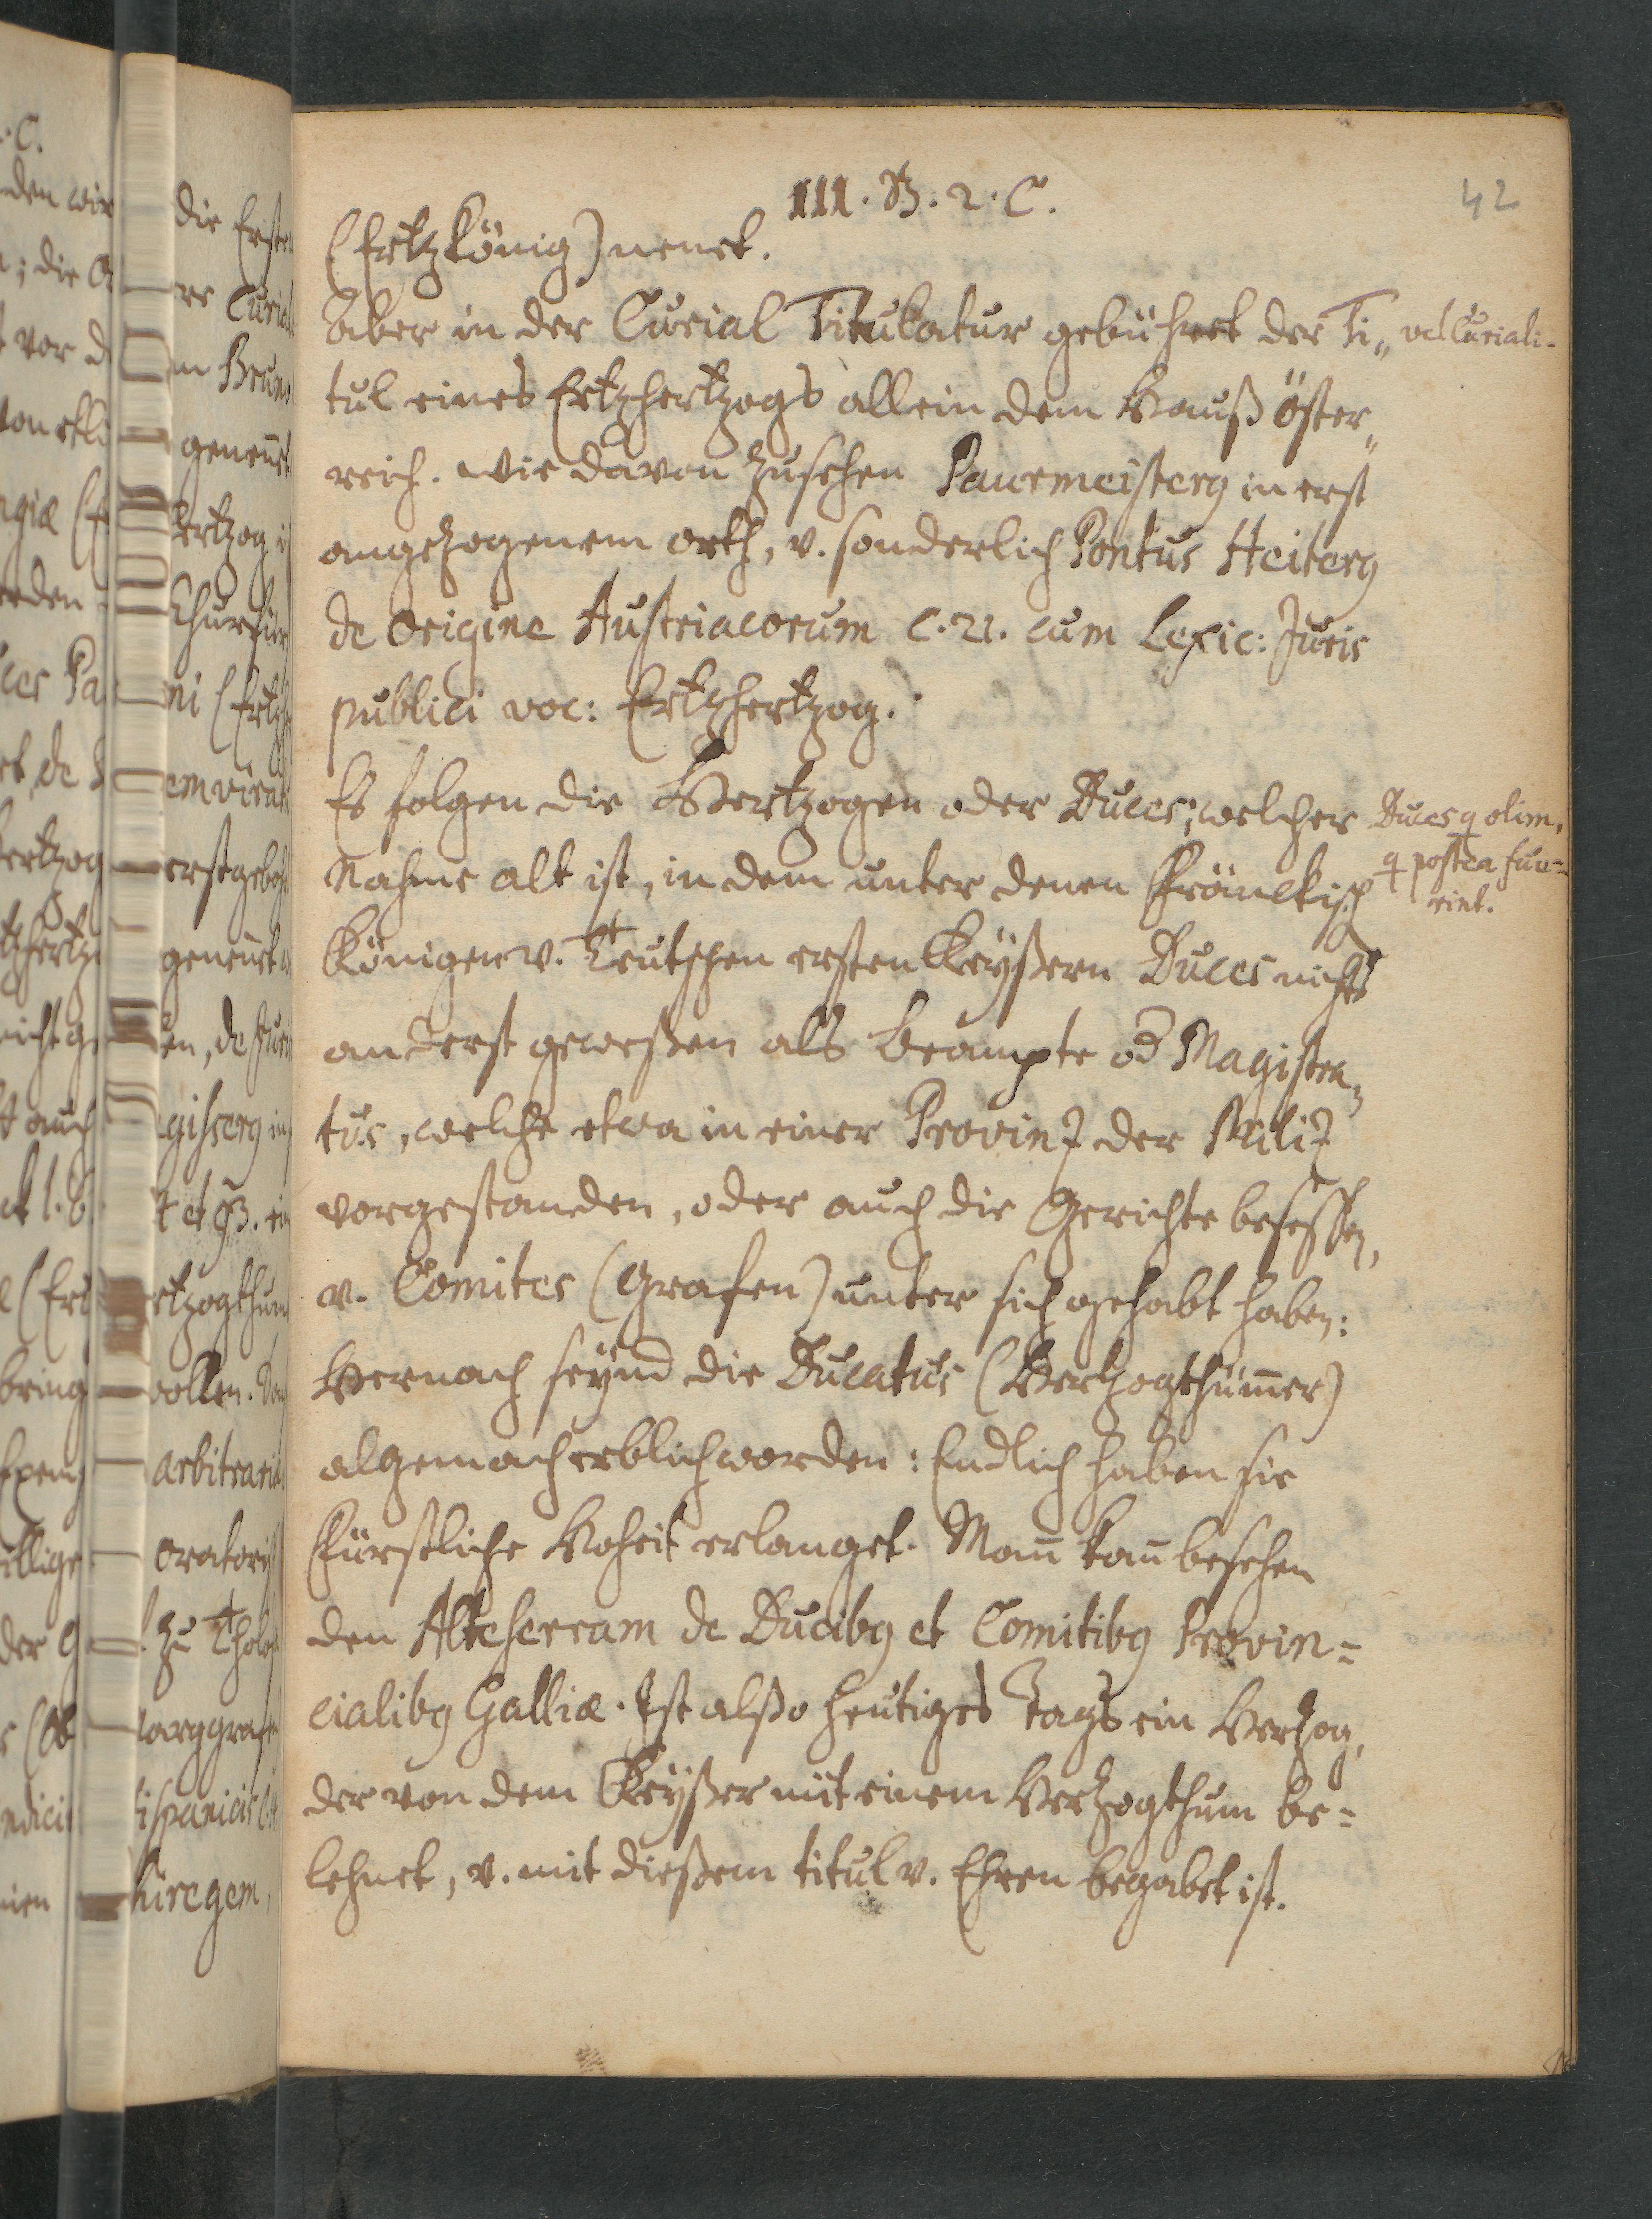 III. B. 2. C.
42
(Ertzkönig) nenet.
Aber in der Curial Titulatur gebühret der Ti„
vel Curiali.
tul eines Ertzhertzogs allein dem Hauß Öster„
reich. wie davon zusehen Paurmeisterg in erst
angezogenem orth, v. sonderlich Pontus Heiterg
de Origine Austriacorum C. 21. cum Lexic: Juris
publici voc: Ertzhertzog.
Es folgen die Hertzogen oder Duces; welcher
Duces q olim,
Nahme alt ist, in dem unter denen Fränckisch
q postea fue=
rint.
Königen v. Teutschen ersten Keyßern Duces nichts
anderst geweßen als Beampte od Magistra„
tus, welche etwa in einer Provinz der Miliz
vorgestanden, oder auch die Gerichte besessen,
v. Comites (Grafen) unter sich gehabt haben:
Hernach seynd die Ducatus (Hertzogthümer)
algemach erblich worden: Endlich haben sie
Fürstliche Hoheit erlanget. Man kan besehen
den Alteserram de Ducibg et Comitibg Provin=
cialibg Galliæ. Ist alßo heutiges Tags ein Herzog,
der von dem Keyßer mit einem Herzogthum be=
lehnet, v. mit dießem titul v. Ehren begabet ist.